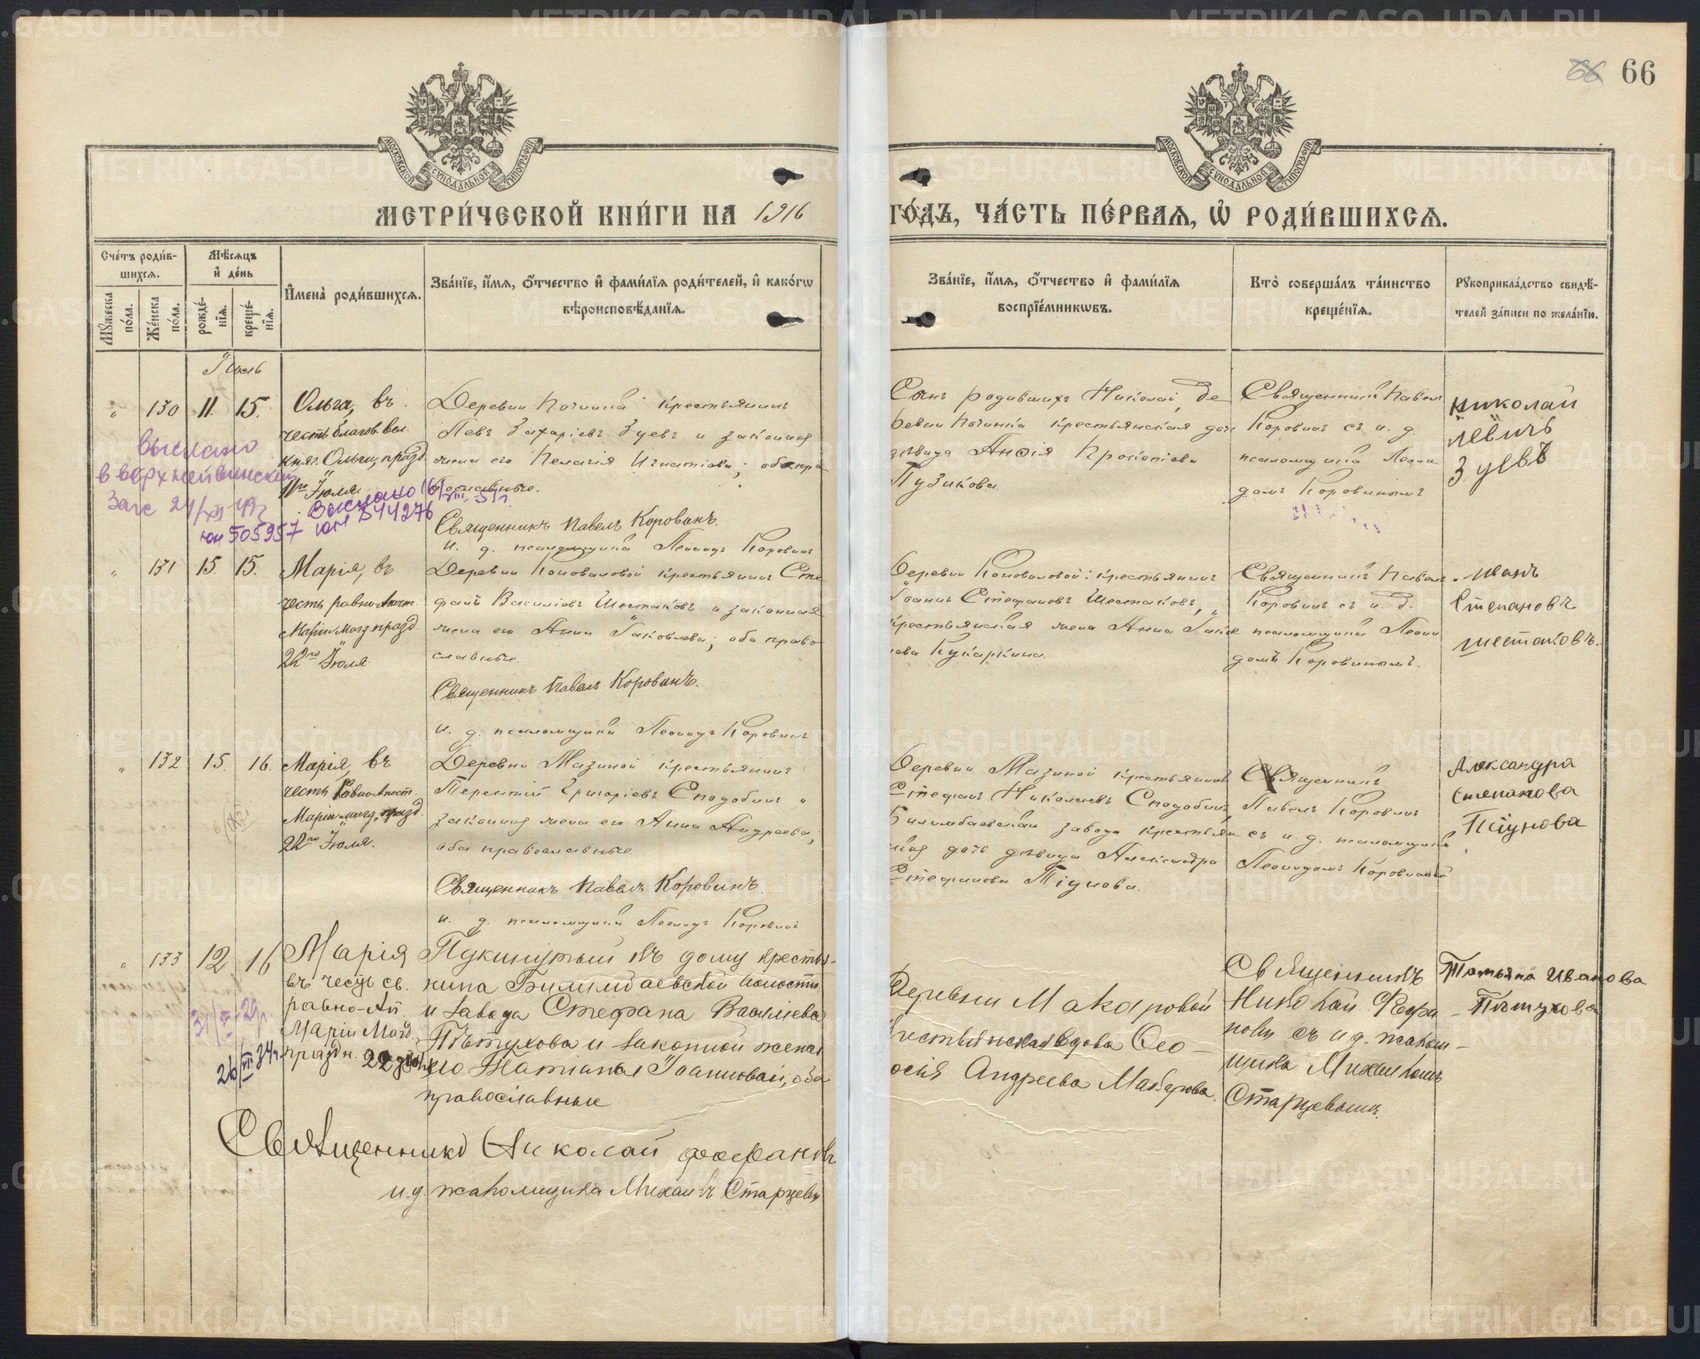 66 66
МЕТРИ́ЧЕСКОЙ КНИ́ГИ НА 1916 ГО́ДЪ, ЧА́СТЬ ПЕ́РВАѦ, Ѽ РОДИ́ВШИХСѦ.
Сче́тъ роди́в-
шихсѧ.
Мꙋ́жеска по́ла.
Же́нска по́ла.
Мѣ́сѧцъ
и҆ де́нь
рожде́-
нїѧ.
креще́-
нїѧ.
И҆мена̀ роди́вшихсѧ.
Зва́нїе, и҆́мѧ, ѻ҆́тчество и҆ фами́лїѧ роди́телей, и҆ како́гѡ
вѣроисповѣ́данїѧ.
Зва́нїе, и҆́мѧ, ѻ҆́тчество и҆ фами́лїѧ
воспрїе́мникѡвъ.
Кто̀ соверша́лъ та́инство
креще́нїѧ.
Рꙋкоприкла́дство свидѣ́-
телей за́писи по жела́нїю.
Іюль
" 130 11. 15.
Ольга, въ
честь благов. вел.
княг. Ольги, празд.
11го Іюля.
Деревни Починка крестьянинъ
Левъ Захаріевъ Зуевъ и законная
жена его Пелагія Игнатіева; оба пра-
вославные.
Священникъ Павелъ Коровинъ.
и. д. псаломщика Леонидъ Коровинъ
Сынъ родившихъ Николай, де-
ревни Починка крестьянская дочь
дѣвица Анѳія Прокопіева
Пузикова
Священникъ Павелъ
Коровинъ съ и. д.
псаломщика Леони-
домъ Коровинымъ
Николай
Левичъ
Зуевъ
Выслано
в Верхнейвинский
Загс
юи 505957
Выслано
544276
" 131 15 15.
Марія, въ
честь равноапост.
Маріи Магд. празд.
22го Іюля
Деревни Коноваловой крестьянинъ Сте-
фанъ Василіевъ Шестаковъ и законная
жена его Анна Іаковлева; оба право-
славные.
Священникъ Павелъ Коровинъ.
и. д. псаломщика Леонидъ Коровинъ
Деревни Коноваловой: крестьянинъ
Іоаннъ Стефановъ Шестаковъ,
крестьянская жена Анна Іаков-
лева Кукаркина.
Священникъ Павелъ
Коровинъ съ и. д.
псаломщика Леони-
домъ Коровинымъ.
Иванъ
Степановъ
Шестаковъ.
" 132 15. 16.
Марія, въ
честь Равноапост.
Маріи Магд. празд.
22го Іюля.
Деревни Мазиной крестьянинъ
Терентій Григоріевъ Сподобинъ и
законная жена его Анна Андреева;
оба православные.
Священникъ Павелъ Коровинъ.
и. д. псаломщика Леонидъ Коровинъ
Деревни Мазиной крестьянинъ
Стефанъ Николаевъ Сподобинъ
Билимбаевскаго завода крестьян-
ская дочь дѣвица Александра
Стефанова Тіунова.
Священникъ
Павелъ Коровинъ
съ и. д. псаломщика
Леонидомъ Коровинымъ
Александра
Степанова
Тіунова
" 133 12 16
Марія
въ честь св.
равно-Ап
Маріи Магд.
праздн. 22 Іюля
Подкинутый въ дому кресть-
янина Билимбаевской волости
и завода Стефана Василіева
Пѣтухова и законной жены
его Татіаны Іоанновой, оба
православные
Священникъ Николай Фофановъ
и. д. псаломщика Михаилъ Старцевъ
Деревни Макаровой
крестьянская вдова Ѳео-
досія Андреева Макарова.
Священникъ
Николай Фофа-
новъ съ и. д. псалом-
щика Михаиломъ
Старцевымъ
Татьяна Иванова
Пѣтухова
METRIKI.GASO-URAL.RU